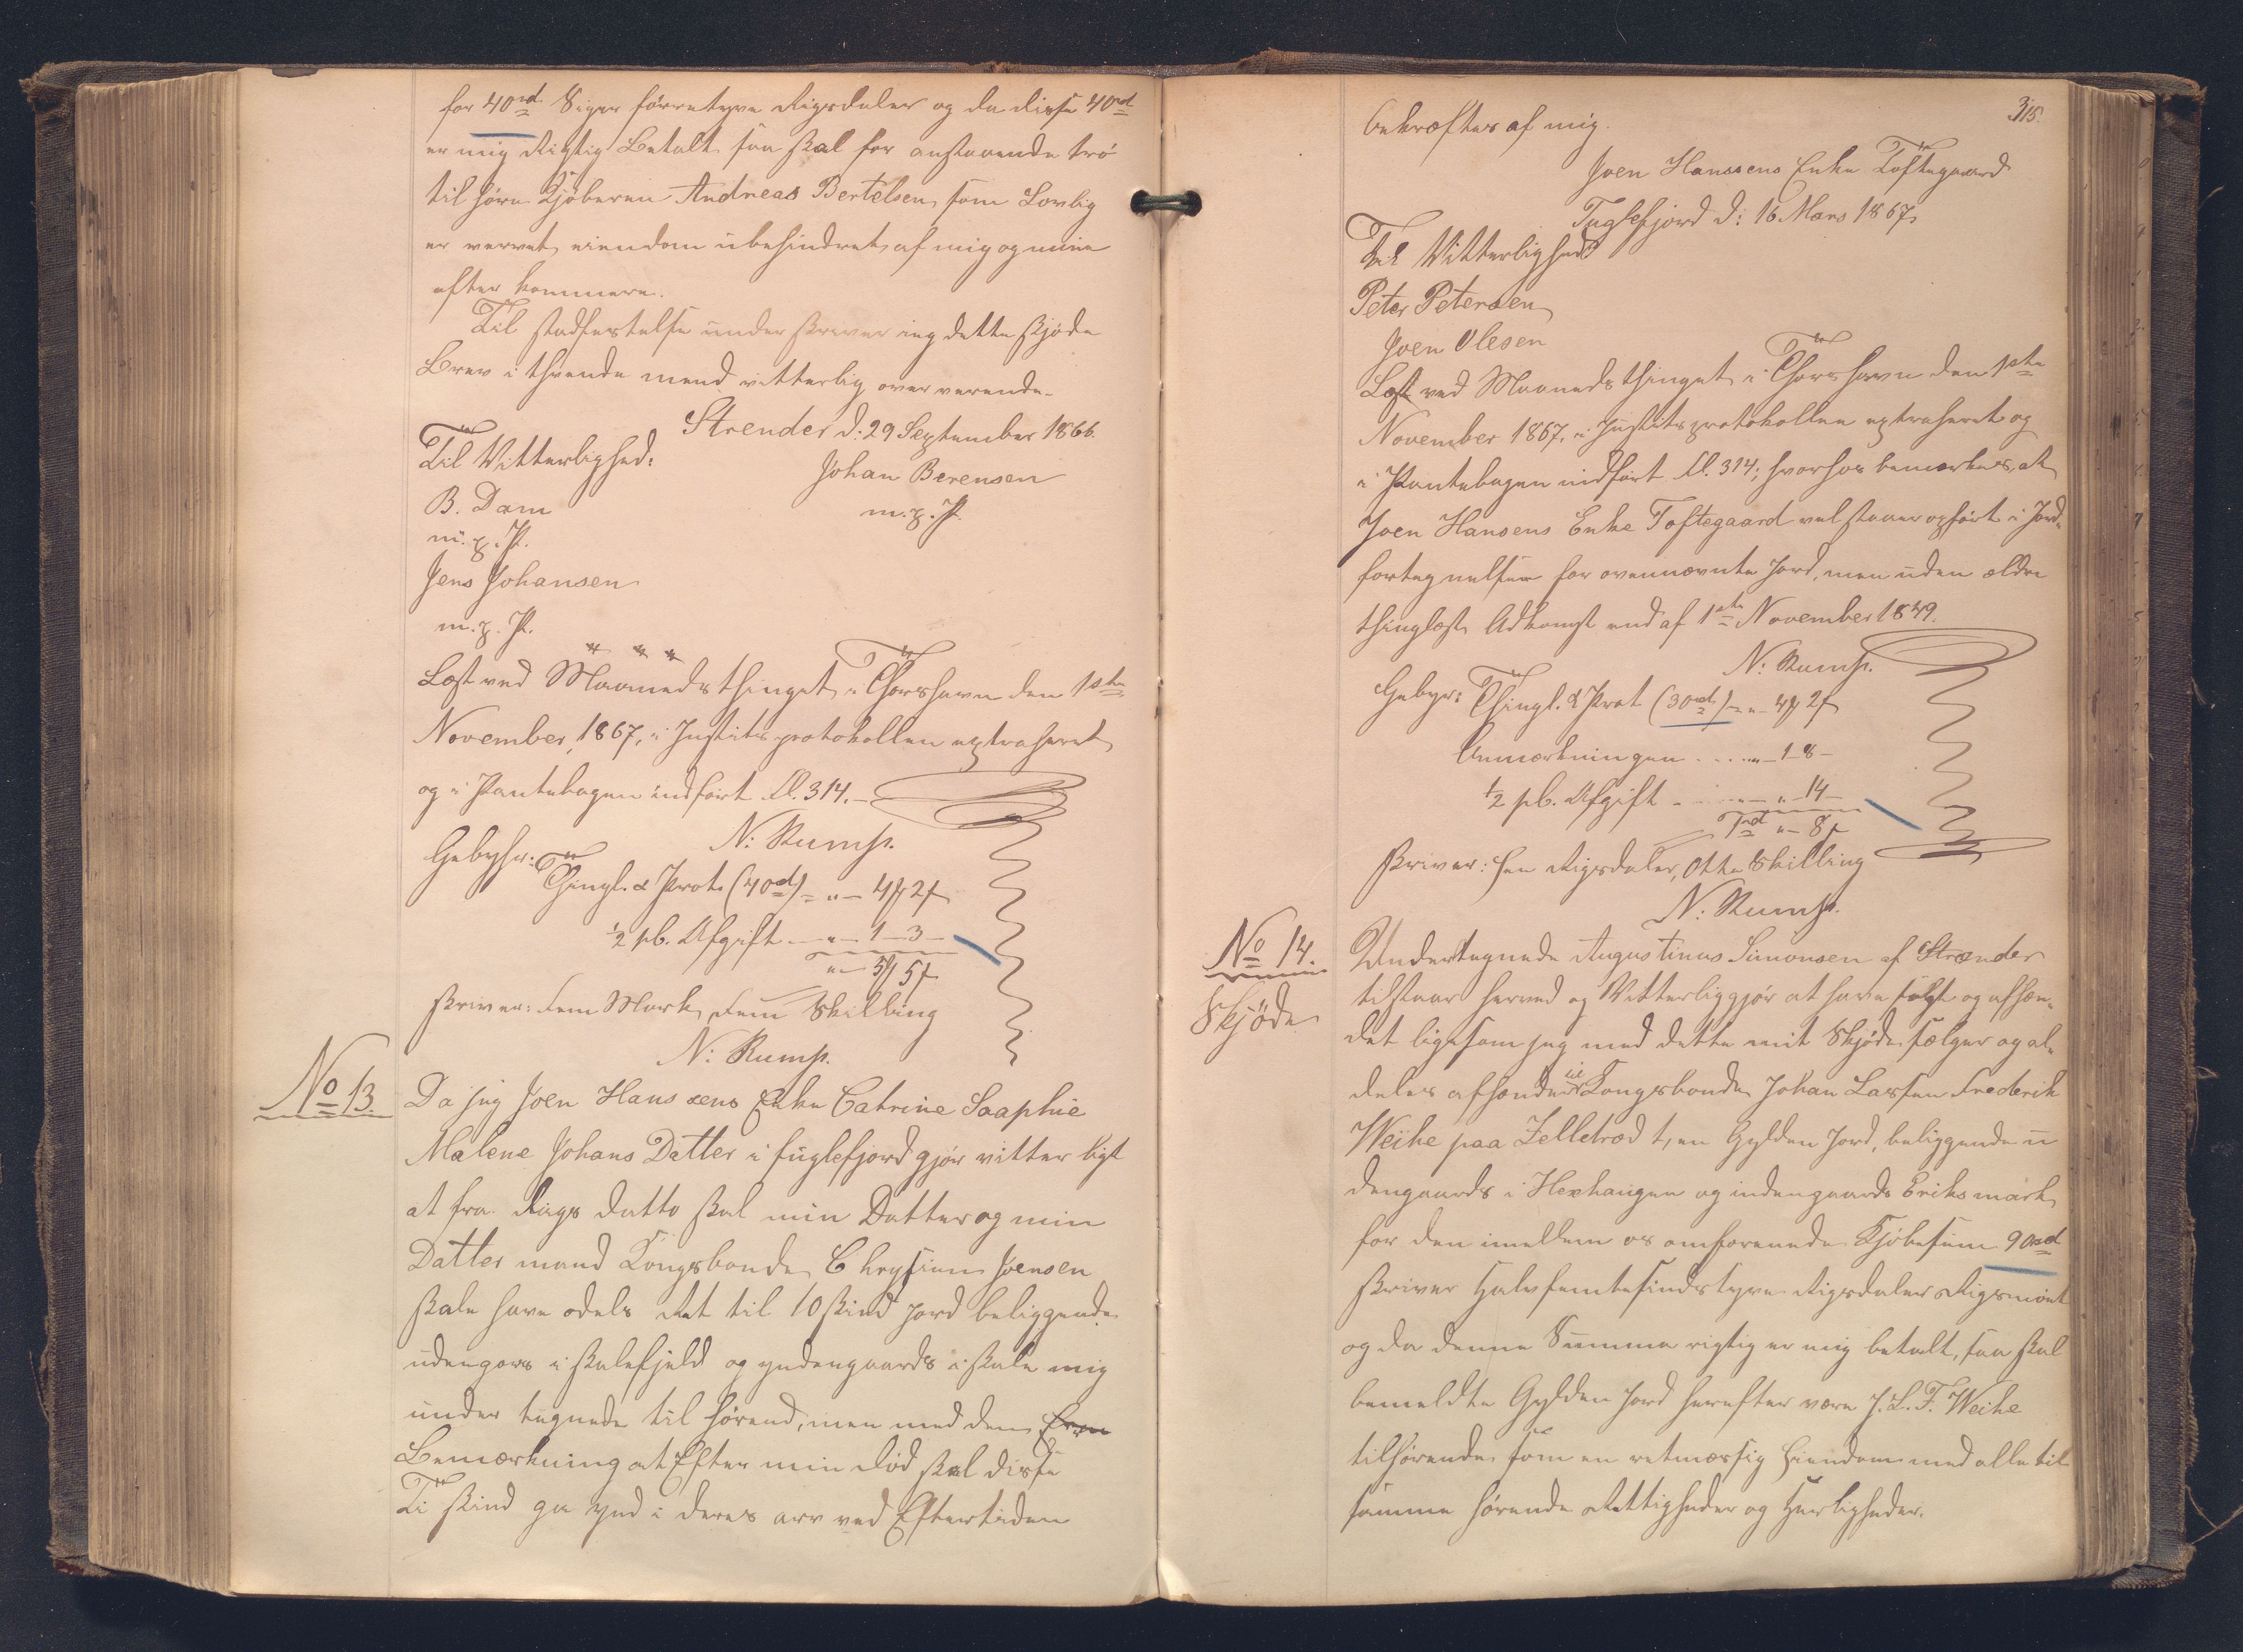 for 40rd Siger förretyve Rigsdaler og da disse 40rd
er mig Rigtig Betalt saa skal for anstaaende trö
til höre Kjöberen Andreas Bertelsen som Lovlig
er vervet eiendom ubehindret af mig og mine
efter kommere.
Til stadfestelse under skriver ieg dette skjöde
Brev i thvende mend vitterlig over verende.
Strender d: 29 September 1866.
Til Vitterlighed:
Johan Berensen
m. p. P.
B. Dam
m. p. P.
Jens Johansen
m. p. P.
Læst ved Maanedsthinget i Thorshavn den 1ste
November, 1867, i Justitsprotokollen extraheret
og i Pantebogen indført Fl. 314.
N: Rump.
Gebyhr: Thingl. & Prot. (40rd) = „ – 4 ₰ 2 ß
½ pCt. Afgift – „ – 1 – 3 –
„ – 5 ₰ 5 ß
skriver: Fem Mark, Fem Skilling
N: Rump.
No 13.
Da jeg Joen Hanssens Enke Catrine Saaphie
Malene Johans Datter i fuglefjord gjör vitter ligt
at fra Dags datto skal min Datter og min
Datter mand Kongsbonde Chrysium Joensen
skale have odels Ret til 10 skind jord beliggende
udengars i skalefjeld og yndengaards i skale mig
under tegnede til hörend, men med den
Bemærkning at Efter min död skal disse
Ti skind ga ynd i deres arv ved Eftertiden
315.
bekræftes af mig.
Joen Hanssens Enke Toftegaard
Fuglefjord d: 16. Mars 1867
Til Vitterlighed
Peter Petersen
Joen Olesen
Læst ved Maanedsthinget i Thorshavn den 1ste
November 1867, i Justitsprotokollen extraheret og
i Pantebogen indført Fl. 314; hvorhos bemærkes, at
Joen Hansens Enke Toftegaard vel staaer opfört i Jord-
fortegnelsen for ovennævnte Jord, men uden ældre
thinglæst Adkomst end af 1ste November 1849.
N: Rump.
Gebyr: Thingl. & Prot (30rd) = „ – 4 ₰ 2 ß
Anmærkningen ... „ – 1 – 8 –
½ pCt. Afgift – „ – „ – 14 –
1rd „ – 8 ß
skriver: Een Rigsdaler, Otte Skilling
N: Rump.
No 14.
Skjöde
Undertegnede Augustinus Simonsen af Strænder
tilstaar herved og Vitterliggjör at have solgt og afhæn-
det ligesom jeg med dette mit Skjöde sælger og al-
deles afhænder til Kongsbonde Johan Lassen Frederik
Weihe paa Selletrod 1, en Gylden Jord, beliggende u
dengaards i Hexhaugen og indengaards Eriksmark
for den imellem os omforenede Kjöbesum 90rd
skriver Halvfemtesindstyve Rigsdaler Rigsmönt
og da denne Summa rigtig er mig betalt, saa skal
bemeldte Gylden Jord herefter være J. L. F. Weihe
tilhörende som en retmæssig Eiendom med alle til
samme hörende Rettigheder og Herligheder.